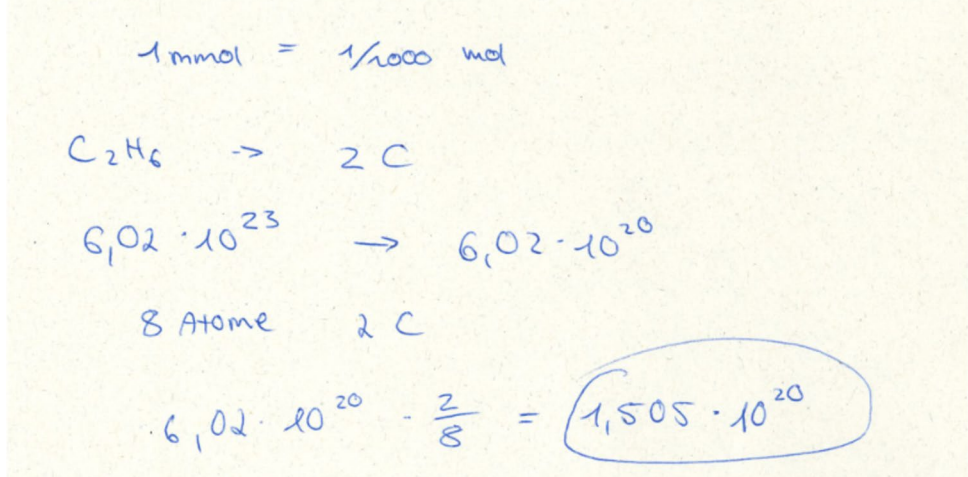 1 mmol = 1/1000 mol
C₂H₆ -> 2 C
6,02 · 10²³ -> 6,02 · 10²⁰
8 Atome 2 C
6,02 · 10²⁰ · 2/8 = 1,505 · 10²⁰